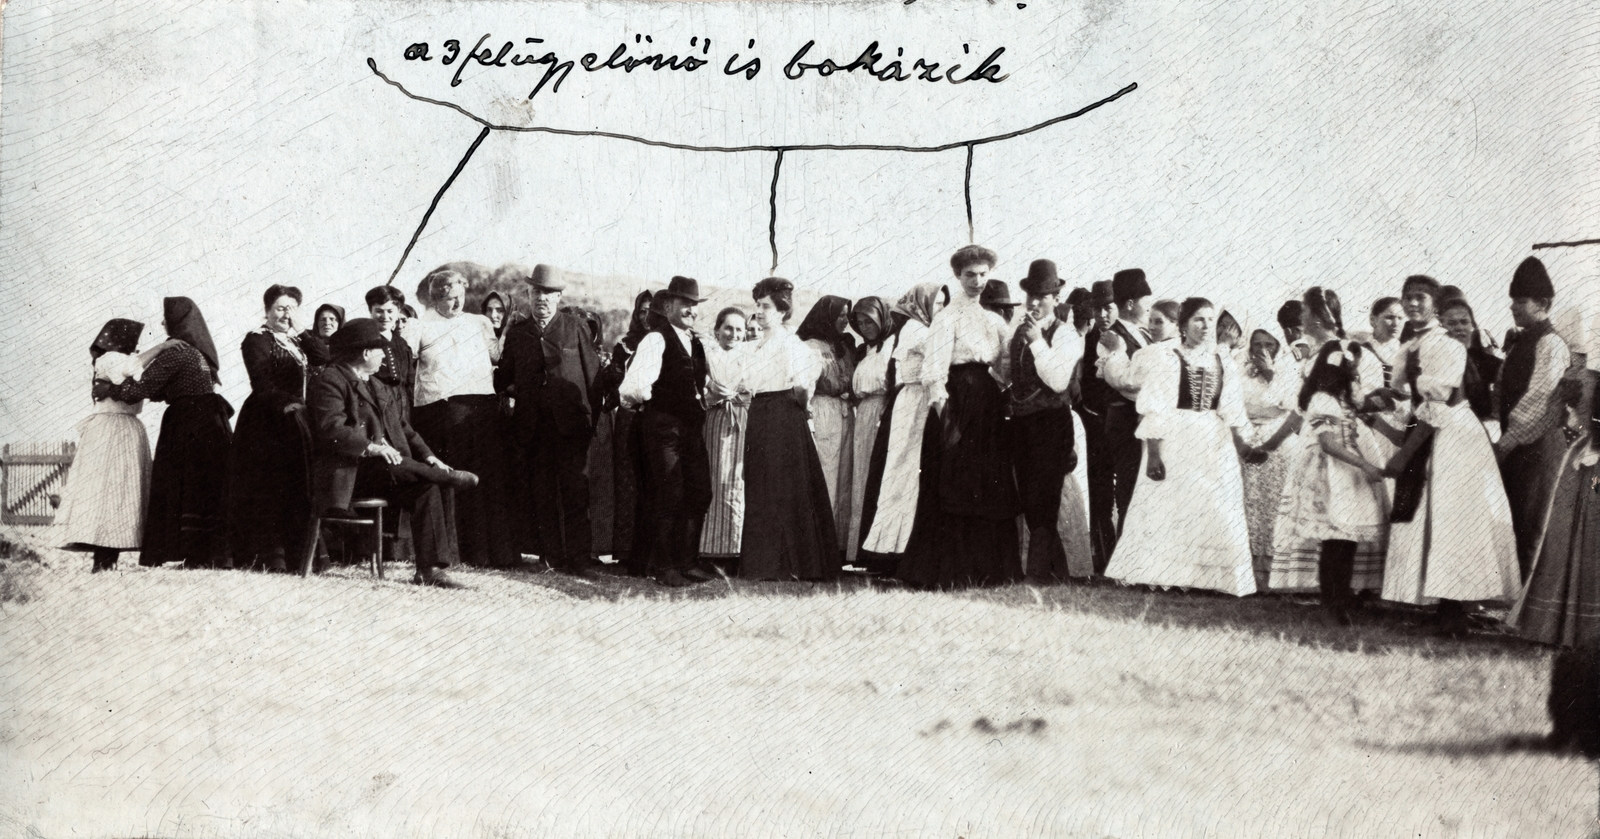 a 3 felügyelönö is bokázik